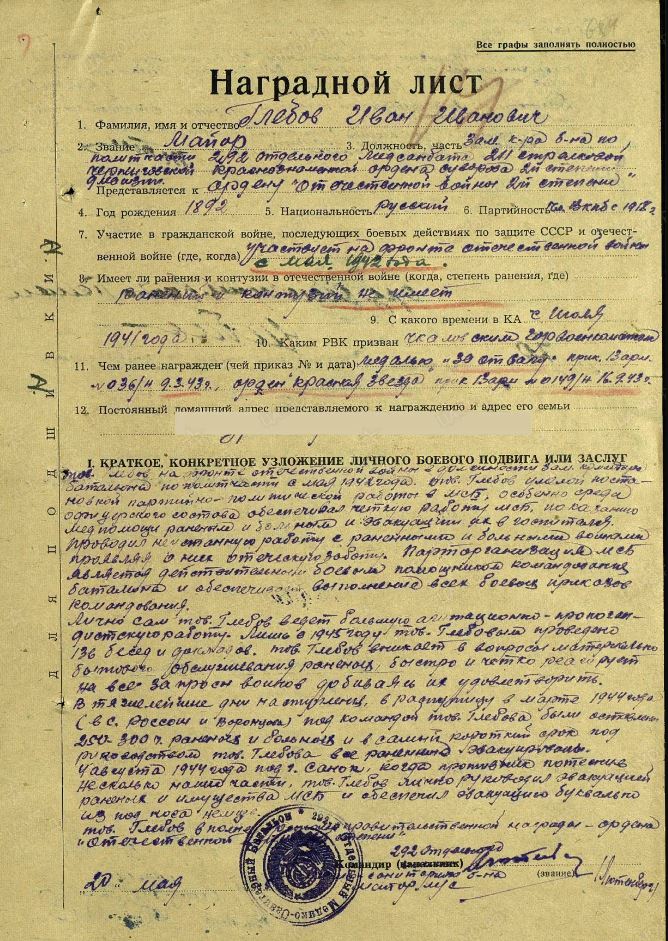 Все графы заполнять полностью
Наградной лист
1. Фамилия, имя и отчество Глебов Иван Иванович
2. Звание Майор 3. Должность, часть Зам. к-ра б-на по
политчасти 292 отдельного Медсанбата 211 стрелковой
Черниговской Краснознаменной ордена Суворова 2й степени
дивизии.
Представляется к ордену "Отечественной войны 2й степени"
4. Год рождения 1892 5. Национальность русский 6. Партийность
7. Участие в гражданской войне, последующих боевых действиях по защите СССР и отечест-
венной войне (где, когда) участвует на фронте отечественной войны
с мая 1942 года.
8. Имеет ли ранения и контузии в отечественной войне (когда, степень ранения, где)
ранений и контузий не имеет
9. С какого времени в КА с июля
1941 года 10. Каким РВК призван Чкаловским Горвоенкоматом
11. Чем ранее награжден (чей приказ № и дата) медалью "За отвагу" прик. 13 арм.
№ 036/н 9.3.43г., орден Красная звезда прик 13 арм № 0149/н 16.9.43г.
12. Постоянный домашний адрес представляемого к награждению и адрес его семьи
I. КРАТКОЕ, КОНКРЕТНОЕ УЗЛОЖЕНИЕ ЛИЧНОГО БОЕВОГО ПОДВИГА ИЛИ ЗАСЛУГ
тов. Глебов на фронте отечественной войны в должности зам. командира
батальона по политчасти с мая 1942 года. Тов. Глебов умелой поста-
новкой партийно-политической работы в МСБ, особенно среди
офицерского состава обеспечивал четкую работу МСБ, по оказанию
медпомощи раненым и больным и эвакуации их в госпиталя.
Проводил неустанную работу с ранеными и больными воинами
проявляя о них отеческую заботу. Парторганизация МСБ
является действительным боевым помощником командования
батальона и обеспечивает выполнение всех боевых приказов
командования.
Лично сам тов. Глебов ведет большую агитационно-пропаган-
дистскую работу. Лишь в 1945 году тов. Глебовым проведено
136 бесед и докладов. тов Глебов вникает в вопросы материально
бытового обслуживания раненых, быстро и четко реагирует
на все запросы воинов добиваясь их удовлетворить.
В тяжелейшие дни наступления, в распутицу в марте 1944 года
(в с. Россоши и Воронцова) под командой тов. Глебова были оставлены
250-300 ч. раненых и больных и в самый короткий срок под
руководством тов. Глебова все раненые эвакуированы.
4 августа 1944 года под г. Санок, когда противник потеснив
несколько наши части, тов. Глебов лично руководил эвакуацией
раненых и имущества МСБ и обеспечил эвакуацию буквально
из под носа немцев
тов. Глебов вполне правительственной награды - ордена
"Отечественной степени"
292 отдельного
Командир (начальник) (звание)
санитарного б-на
майор м/с
20 мая
ДЛЯ ПОДШИВКИ